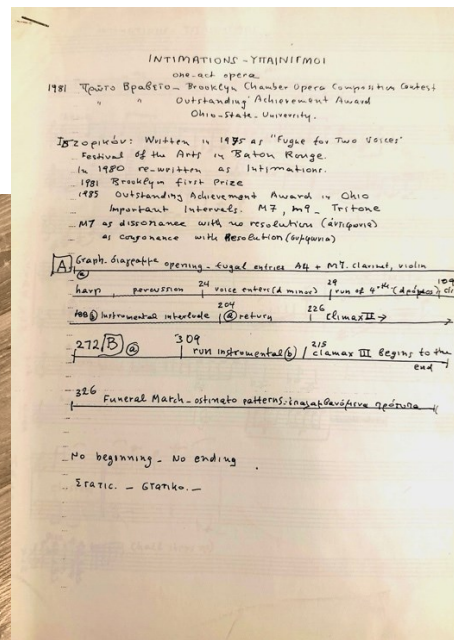 INTIMATIONS - ΥΠΑΙΝΙΓΜΟΙ
one-act opera
1981 Πρῶτο Βραβεῖο - Brooklyn Chamber Opera Composition Contest
" " Outstanding Achievement Award
Ohio-State-University.
Ἱστορικόν: Written in 1975 as "Fugue for Two Voices"
Festival of the Arts in Baton Rouge.
In 1980 re-written as Intimations.
1981 Brooklyn first Prize
1985 Outstanding Achievement Award in Ohio
Important Intervals. M7, m9 - Tritone
M7 as dissonance with no resolution (ἀντιφωνία)
as consonance with Resolution (συμφωνία)
A Graph. διάγραμμα opening - fugal entries A4 + M7. clarinet, violin
a
harp, percussion 24 voice enters (d minor) 29 run of 4ths (δρόμος) 109
188 b Instrumental interlude 204 a return 226 Climax II →
272 B a 309 run instrumental b 315 climax III begins to the
end
326 Funeral March - ostinato patterns: ἐπαναλαμβανόμενα πρότυπα
No beginning - No ending
Static. - Στατικό. -